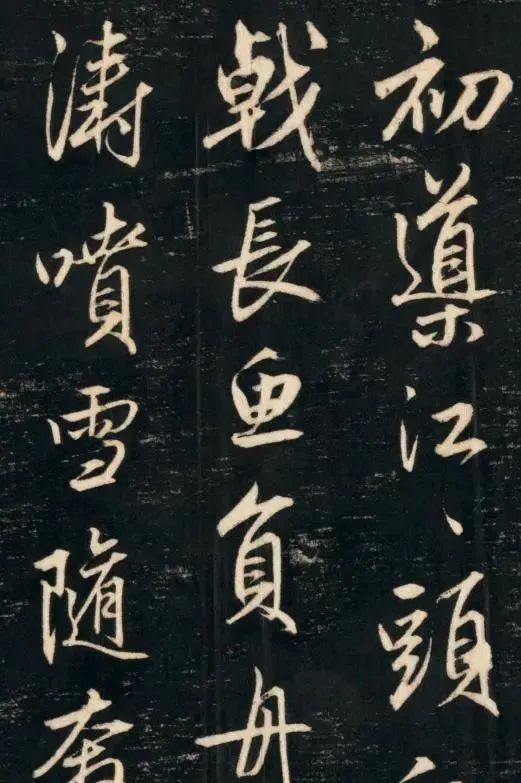 初導江、頭
戟長魚負舟
濤噴雪隨